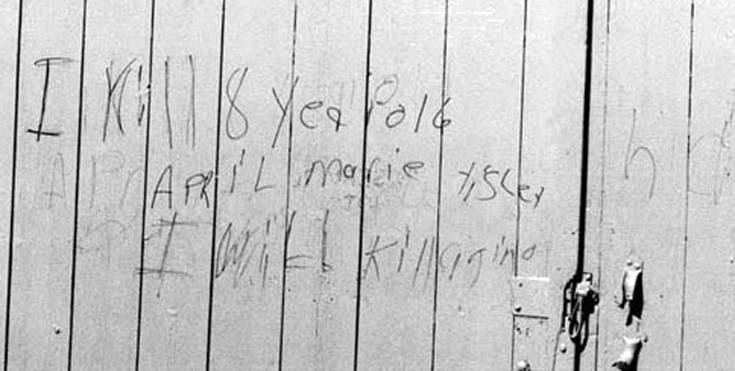 I Kill 8 Year old
APRiL marie tisley
I Will kill agina